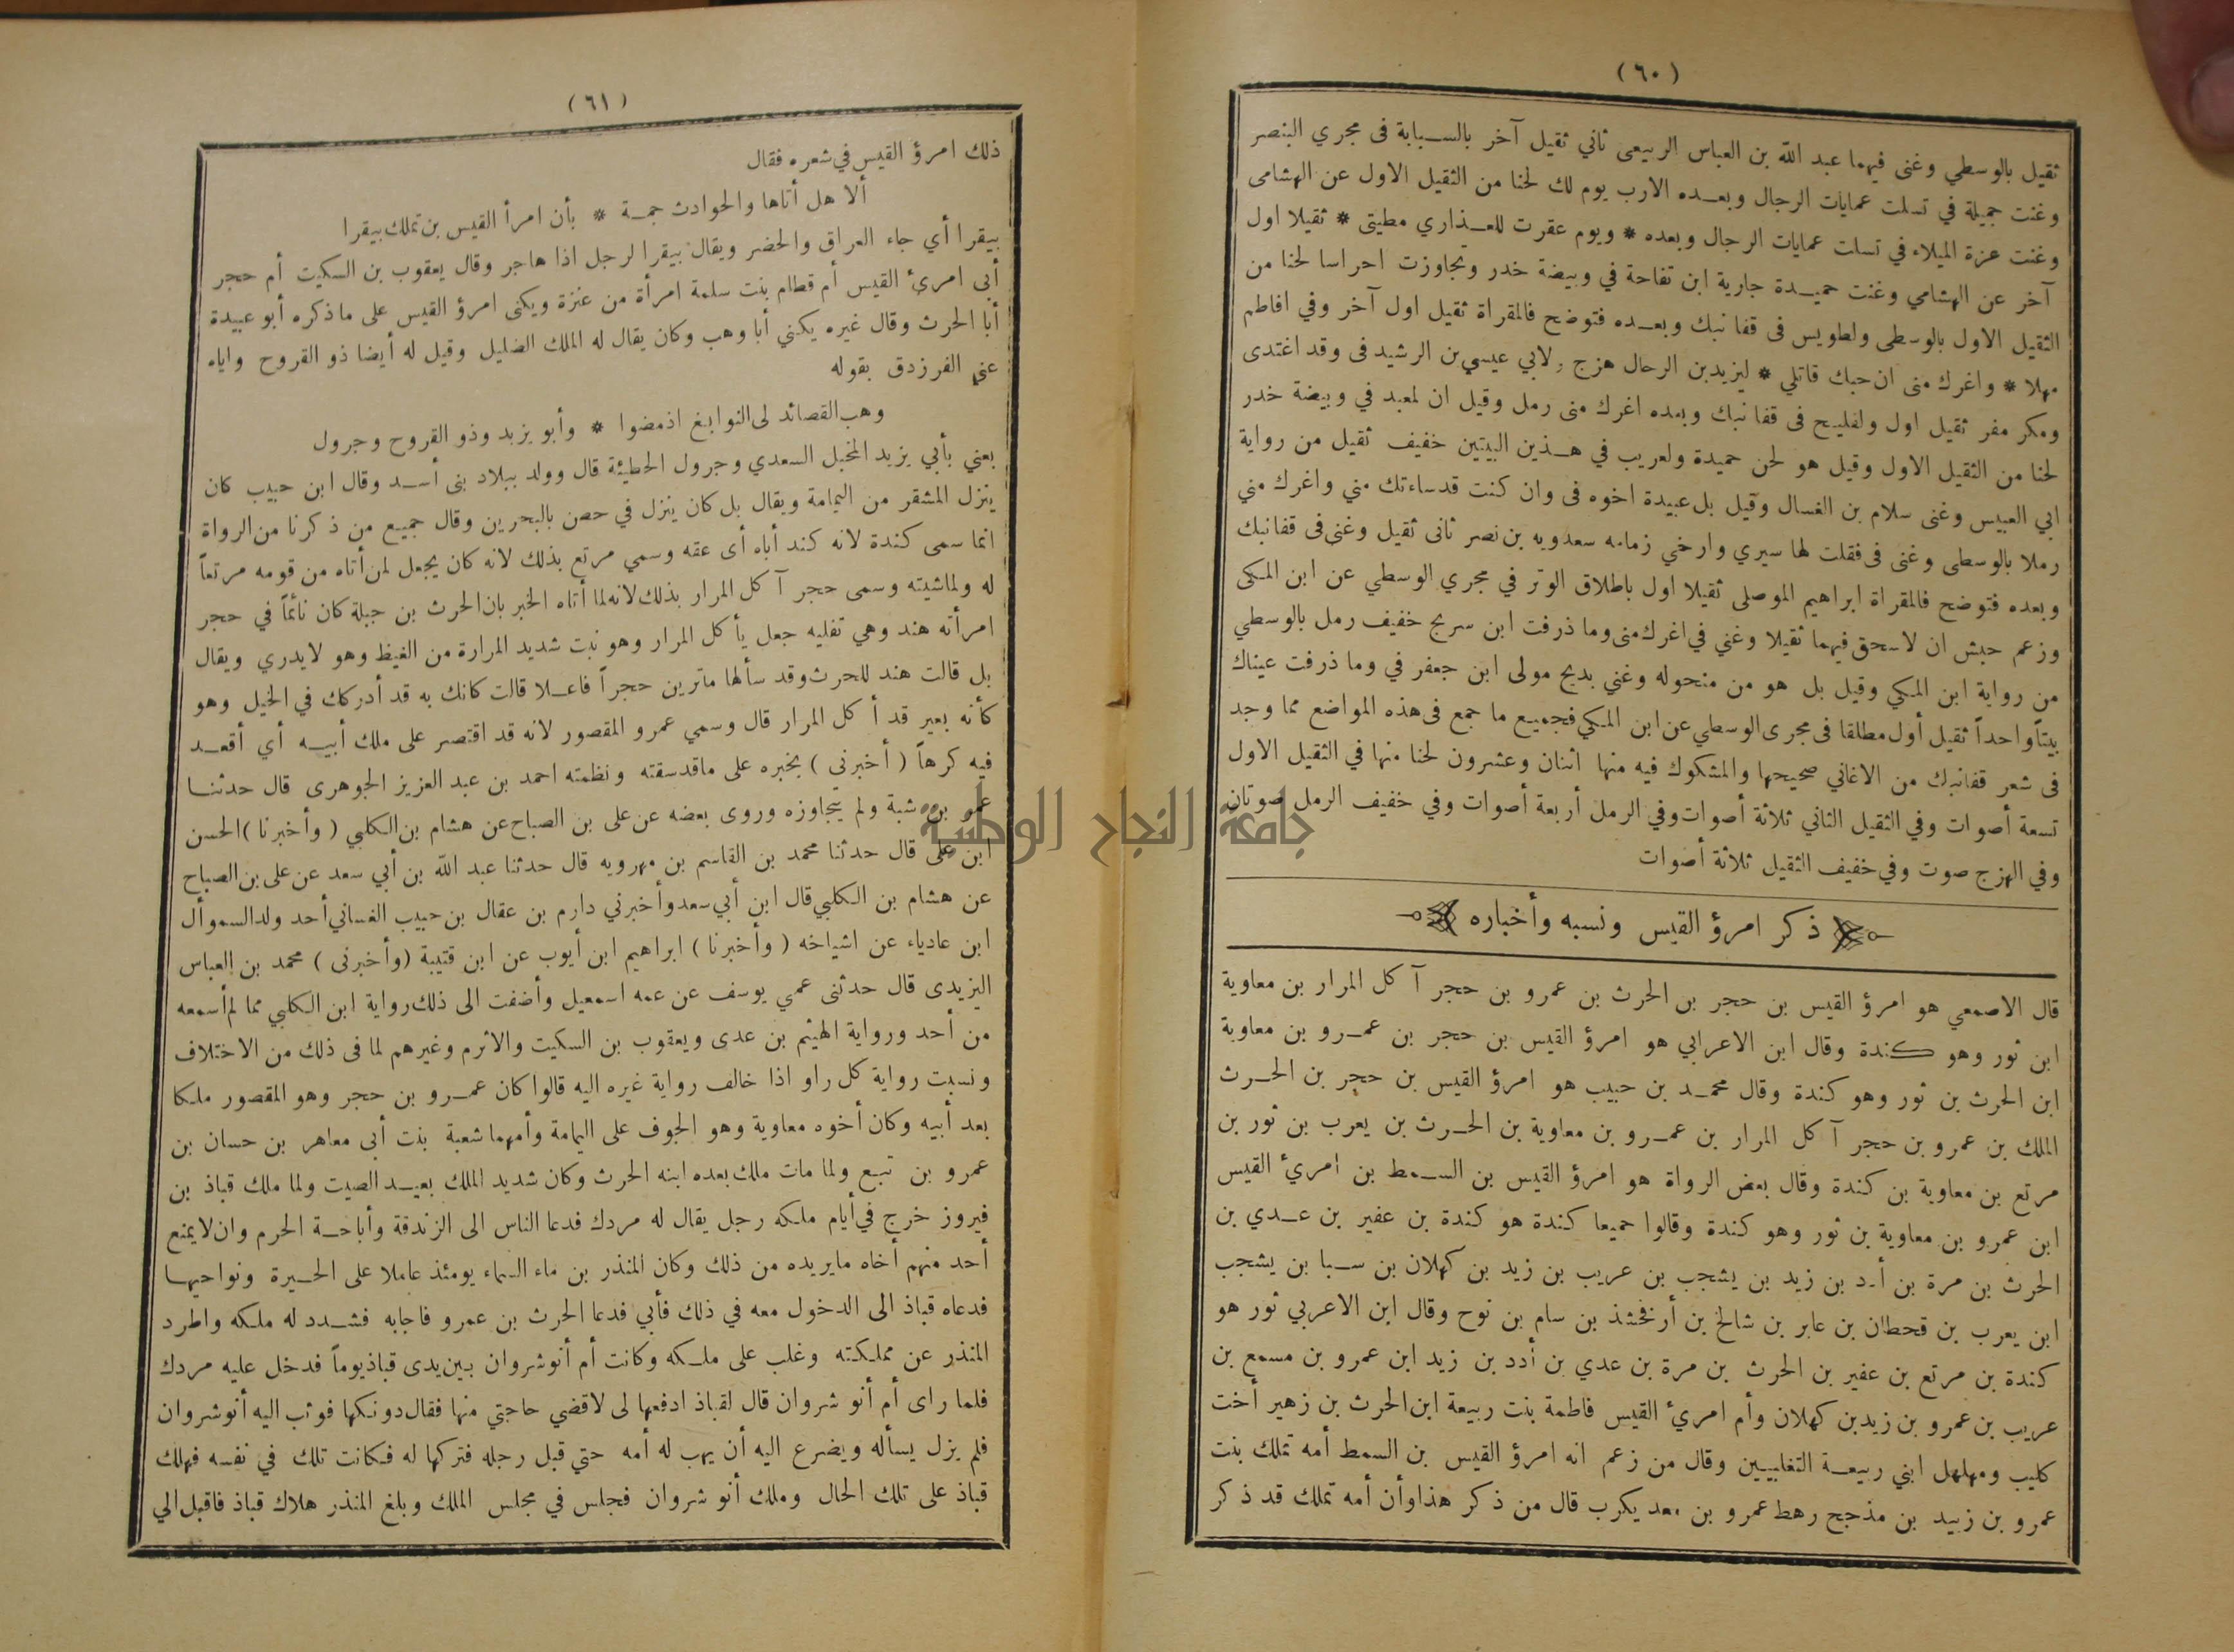 (٦٠)
ثقيل بالوسطي وغنى فيهما عبد الله بن العباس الربيعى ثاني ثقيل آخر بالسبابة فى مجري البنصر
وغنت جميلة في تسلت عمايات الرجال وبعده الارب يوم لك لحنا من الثقيل الاول عن الهشامى
وغنت عزة الميلاء في تسلت عمايات الرجال وبعده * ويوم عقرت للعذاري مطيتى * ثقيلا اول
آخر عن الهشامي وغنت حميدة جارية ابن تفاحة في وبيضة خدر وتجاوزت احراسا لحنا من
الثقيل الاول بالوسطى ولطويس فى قفا نبك وبعده فتوضح فالمقراة ثقيل اول آخر وفي افاطم
مهلا * واغرك منى ان حبك قاتلي * ليزيد بن الرحال هزج ولابي عيسي بن الرشيد فى وقد اغتدى
ومكر مفر ثقيل اول ولفليح فى قفا نبك وبعده اغرك منى رمل وقيل ان لمعبد في وبيضة خدر
لحنا من الثقيل الاول وقيل هو لحن حميدة ولعريب في هذين البيتين خفيف ثقيل من رواية
ابي العبيس وغنى سلام بن الغسال وقيل بل عبيدة اخوه فى وان كنت قد ساءتك مني واغرك مني
رملا بالوسطى وغنى فى فقلت لها سيري وارخي زمامه سعدويه بن نصر ثانى ثقيل وغنى فى قفا نبك
وبعده فتوضح فالمقراة ابراهيم الموصلى ثقيلا اول باطلاق الوتر في مجري الوسطي عن ابن المكى
وزعم حبش ان لاسحق فيهما ثقيلا وغني في اغرك منى وما ذرفت ابن سريج خفيف رمل بالوسطي
من رواية ابن المكي وقيل بل هو من منحوله وغني بديح مولى ابن جعفر في وما ذرفت عيناك
بيتاً واحداً ثقيل أول مطلقا فى مجرى الوسطي عن ابن المكي فجميع ما جمع فى هذه المواضع مما وجد
فى شعر قفانبك من الاغاني صحيحها والمشكوك فيه منها اثنان وعشرون لحنا منها في الثقيل الاول
تسعة أصوات وفي الثقيل الثاني ثلاثة أصوات وفي الرمل أربعة أصوات وفي خفيف الرمل صوتان
وفي الهزج صوت وفي خفيف الثقيل ثلاثة أصوات
ذكر امرؤ القيس ونسبه وأخباره
قال الاصمعي هو امرؤ القيس بن حجر بن الحرث بن عمرو بن حجر آكل المرار بن معاوية
ابن ثور وهو كندة وقال ابن الاعرابي هو امرؤ القيس بن حجر بن عمرو بن معاوية
ابن الحرث بن ثور وهو كندة وقال محمد بن حبيب هو امرؤ القيس بن حجر بن الحرث
الملك بن عمرو بن حجر آكل المرار بن عمرو بن معاوية بن الحرث بن يعرب بن ثور بن
مرتع بن معاوية بن كندة وقال بعض الرواة هو امرؤ القيس بن السمط بن امرئ القيس
ابن عمرو بن معاوية بن ثور وهو كندة وقالوا جميعا كندة هو كندة بن عفير بن عدي بن
الحرث بن مرة بن أد بن زيد بن يشجب بن عريب بن زيد بن كهلان بن سبا بن يشجب
ابن يعرب بن قحطان بن عابر بن شالخ بن أرفخشذ بن سام بن نوح وقال ابن الاعربي ثور هو
كندة بن مرتع بن عفير بن الحرث بن مرة بن عدي بن أدد بن زيد ابن عمرو بن مسمع بن
عريب بن عمرو بن زيد بن كهلان وأم امريء القيس فاطمة بنت ربيعة ابن الحرث بن زهير أخت
كليب ومهلهل ابني ربيعة التغلبيين وقال من زعم انه امرؤ القيس بن السمط أمه تملك بنت
عمرو بن زبيد بن مذحج رهط عمرو بن معد يكرب قال من ذكر هذا وأن أمه تملك قد ذكر
(٦١)
ذلك امرؤ القيس في شعره فقال
ألا هل أتاها والحوادث جمة * بأن امرأ القيس بن تملك بيقرا
بيقرا أي جاء العراق والحضر ويقال بيقرا لرجل اذا هاجر وقال يعقوب بن السكيت أم حجر
أبى امرئ القيس أم قطام بنت سلمة امرأة من عنزة ويكنى امرؤ القيس على ما ذكره أبو عبيدة
أبا الحرث وقال غيره يكني أبا وهب وكان يقال له الملك الضليل وقيل له أيضا ذو القروح واياه
عني الفرزدق بقوله
وهب القصائد لى النوابغ اذ مضوا * وأبو يزيد وذو القروح وجرول
يعني بأبي يزيد المخبل السعدي وجرول الحطيئة قال وولد ببلاد بنى أسد وقال ابن حبيب كان
ينزل المشقر من اليمامة ويقال بل كان ينزل في حصن بالبحرين وقال جميع من ذكرنا من الرواة
انما سمى كندة لانه كند أباه أى عقه وسمي مرتع بذلك لانه كان يجعل لمن أتاه من قومه مرتعاً
له ولماشيته وسمى حجر آكل المرار بذلك لانه لما أتاه الخبر بان الحرث بن جبلة كان نائماً في حجر
امرأته هند وهي تفليه جعل يأكل المرار وهو نبت شديد المرارة من الغيظ وهو لا يدري ويقال
بل قالت هند للحرث وقد سألها ما ترين حجراً فاعلا قالت كانك به قد أدركك في الخيل وهو
كأنه بعير قد أكل المرار قال وسمي عمرو المقصور لانه قد اقتصر على ملك أبيه أي أقعد
فيه كرهاً (أخبرنى) بخبره على ما قد سقته ونظمته احمد بن عبد العزيز الجوهرى قال حدثنا
عمر بن شبة ولم يتجاوزه وروى بعضه عن على بن الصباح عن هشام بن الكلبي (وأخبرنا) الحسن
ابن على قال حدثنا محمد بن القاسم بن مهرويه قال حدثنا عبد الله بن أبي سعد عن على بن الصباح
جامعة النجاح الوطنية
عن هشام بن الكلبي قال ابن أبي سعد وأخبرني دارم بن عقال بن حبيب الغساني أحد ولد السموأل
ابن عادياء عن اشياخه (وأخبرنا) ابراهيم ابن أيوب عن ابن قتيبة (وأخبرنى) محمد بن العباس
اليزيدى قال حدثنى عمي يوسف عن عمه اسمعيل وأضفت الى ذلك رواية ابن الكلبي مما لم أسمعه
من أحد ورواية الهيثم بن عدى ويعقوب بن السكيت والاثرم وغيرهم لما فى ذلك من الاختلاف
ونسبت رواية كل راو اذا خالف رواية غيره اليه قالوا كان عمرو بن حجر وهو المقصور ملكا
بعد أبيه وكان أخوه معاوية وهو الجوف على اليمامة وأمهما شعبة بنت أبى معاهر بن حسان بن
عمرو بن تبع ولما مات ملك بعده ابنه الحرث وكان شديد الملك بعيد الصيت ولما ملك قباذ بن
فيروز خرج في أيام ملكه رجل يقال له مردك فدعا الناس الى الزندقة وأباحة الحرم وان لا يمنع
أحد منهم أخاه ما يريده من ذلك وكان المنذر بن ماء السماء يومئذ عاملا على الحيرة ونواحيها
فدعاه قباذ الى الدخول معه في ذلك فأبي فدعا الحرث بن عمرو فاجابه فشدد له ملكه واطرد
المنذر عن مملكته وغلب على ملكه وكانت أم أنوشروان بين يدى قباذ يوماً فدخل عليه مردك
فلما راى أم أنو شروان قال لقباذ ادفعها لى لاقضي حاجتي منها فقال دونكها فوثب اليه أنوشروان
فلم يزل يسأله ويضرع اليه أن يهب له أمه حتي قبل رجله فتركها له فكانت تلك في نفسه فهلك
قباذ على تلك الحال وملك أنو شروان فجلس في مجلس الملك وبلغ المنذر هلاك قباذ فاقبل الي